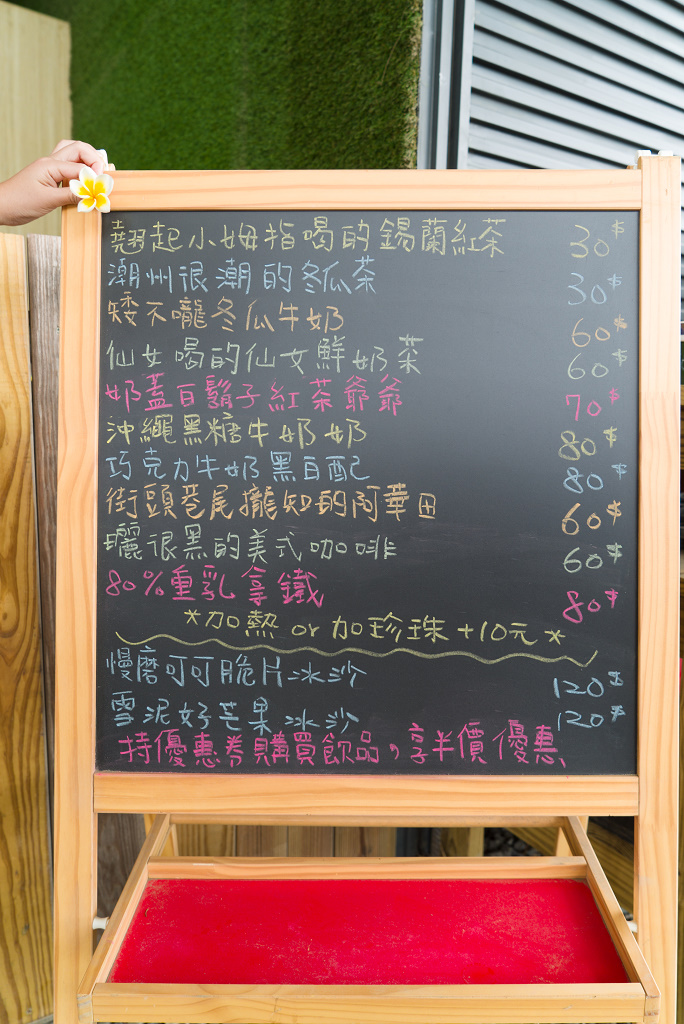 翹起小姆指喝的錫蘭紅茶 30$
潮州很潮的冬瓜茶 30$
矮不嚨冬瓜牛奶 60$
仙女喝的仙女鮮奶茶 60$
奶蓋白鬍子紅茶爺爺 70$
沖繩黑糖牛奶奶 80$
巧克力牛奶黑白配 80$
街頭巷尾攏知的阿華田 60$
曬很黑的美式咖啡 60$
80%重乳拿鐵 80$
*加熱 or 加珍珠 +10元*
慢磨可可脆片冰沙 120$
雪泥好芒果冰沙 120$
持優惠券購買飲品，享半價優惠、